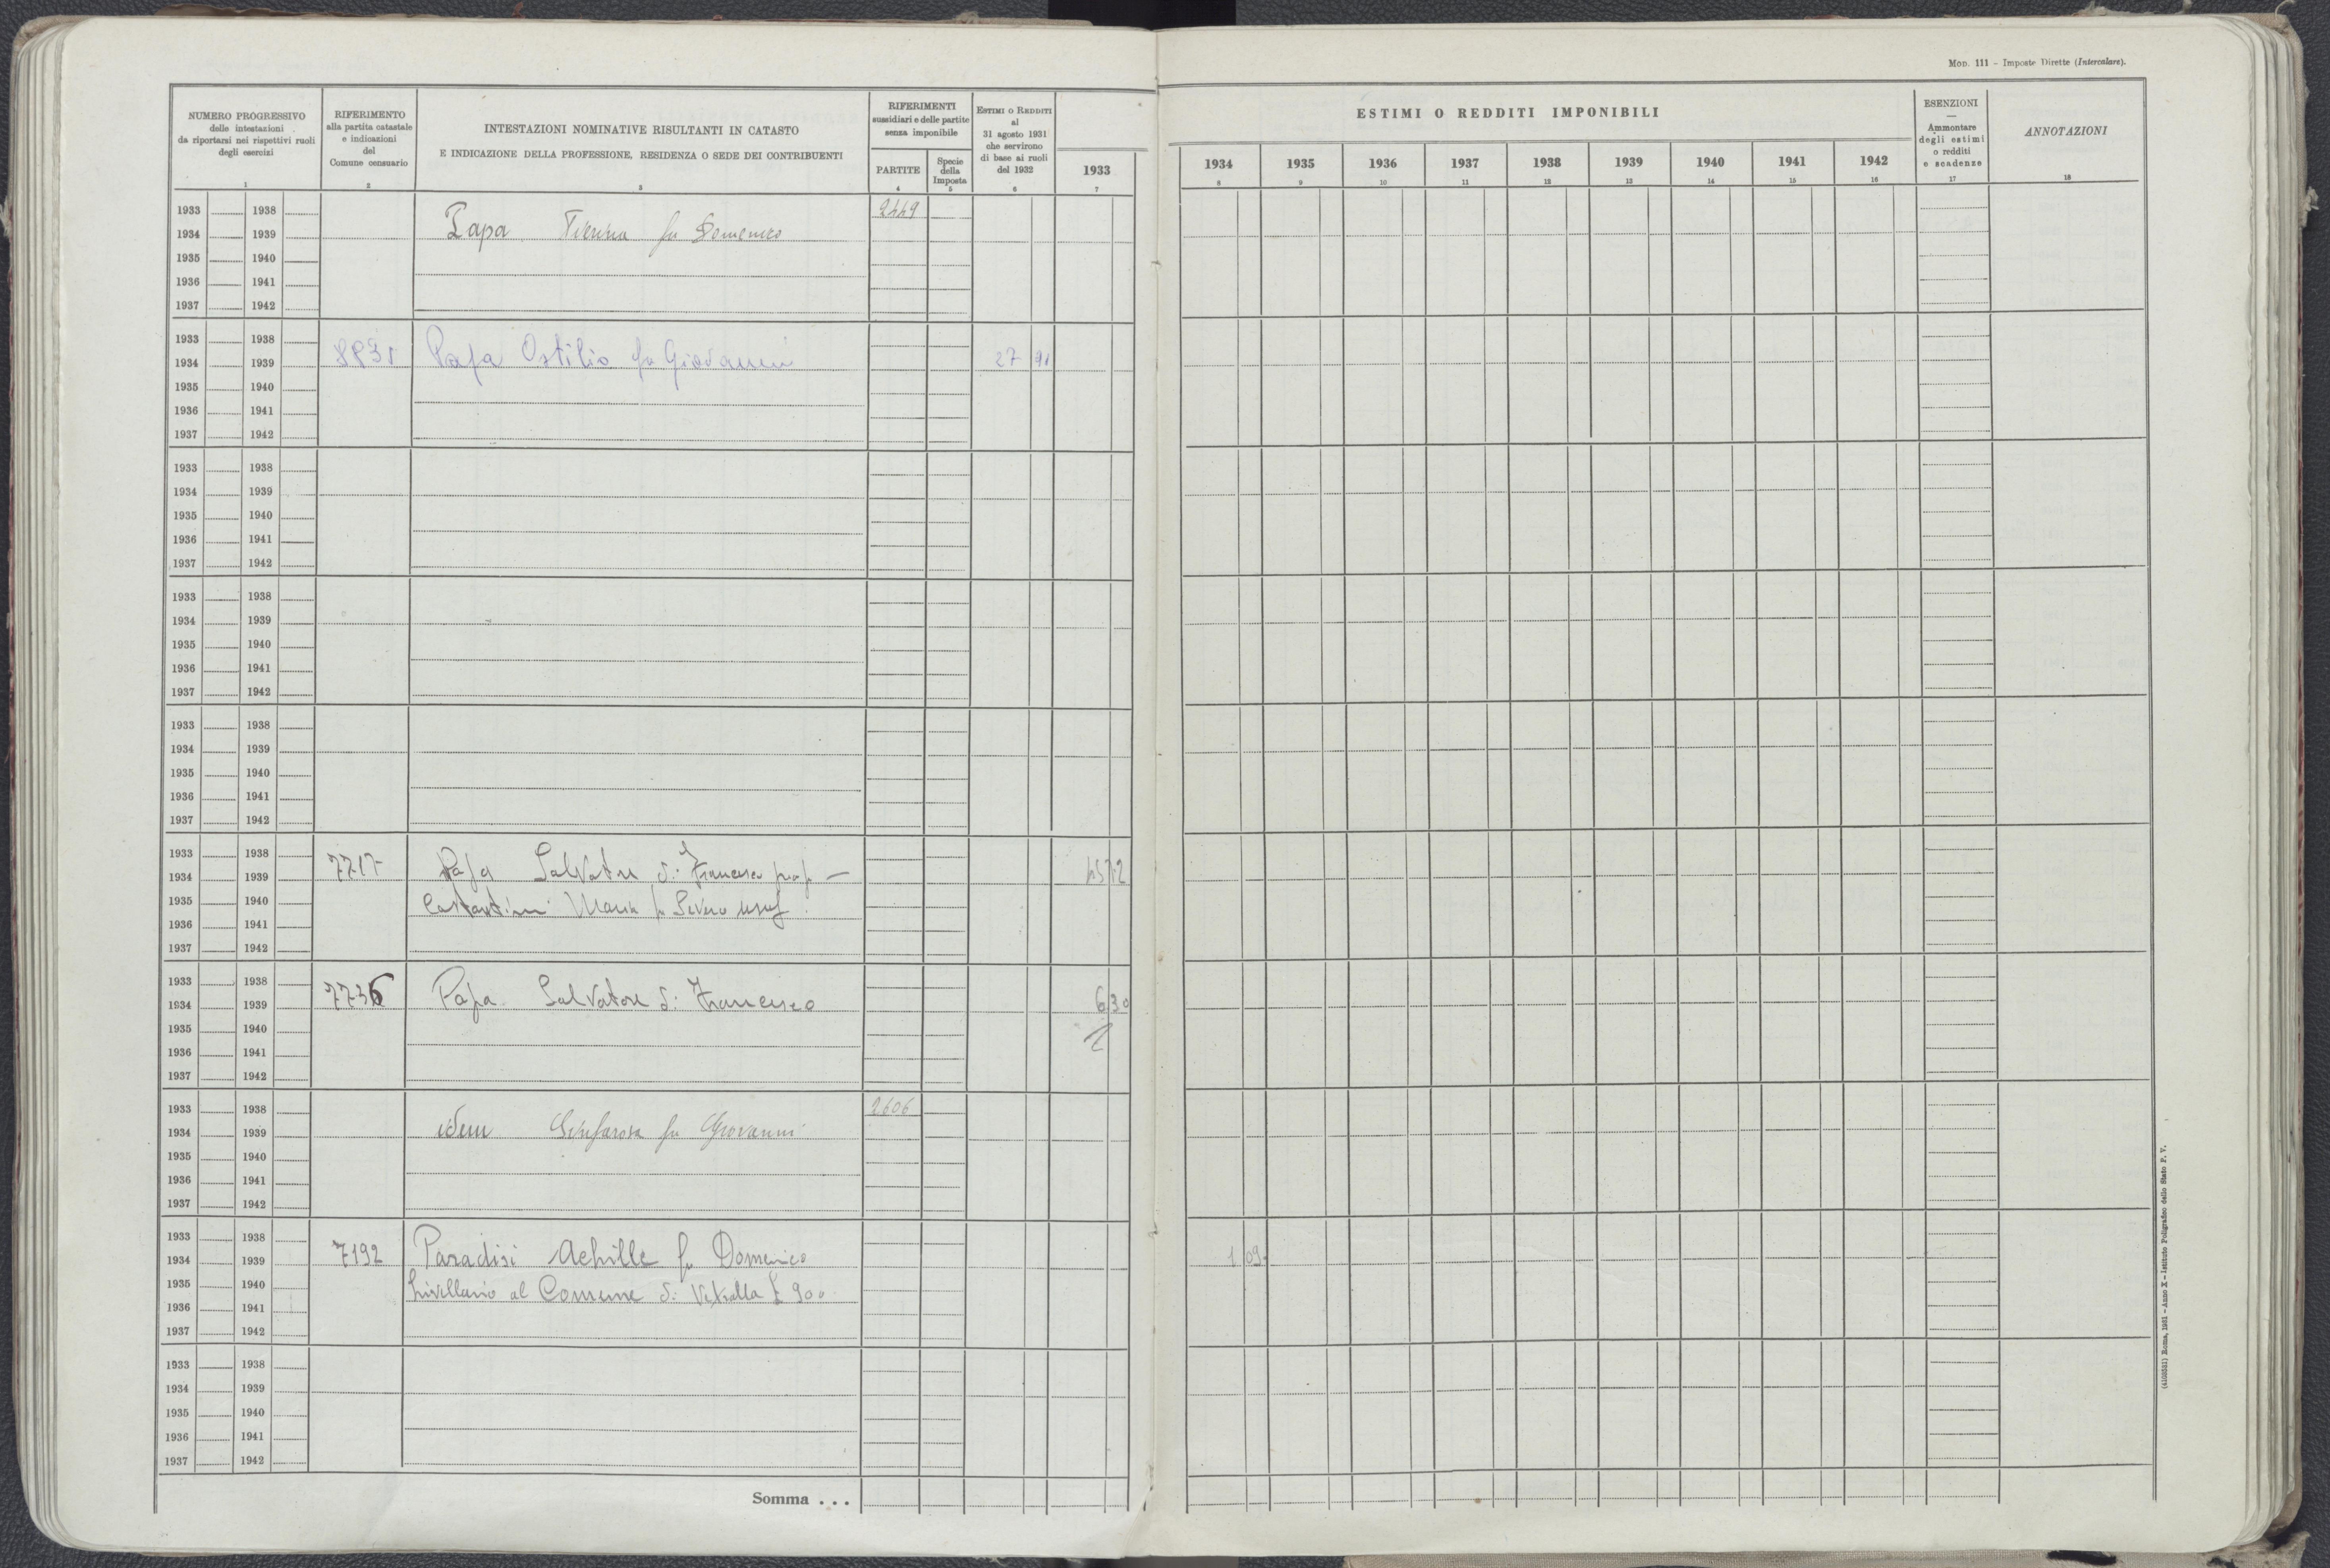 Mod. 111 – Imposte Dirette (Intercalare).
NUMERO PROGRESSIVO
delle intestazioni
da riportarsi nei rispettivi ruoli
degli esercizi
1
RIFERIMENTO
alla partita catastale
e indicazioni
del
Comune censuario
2
INTESTAZIONI NOMINATIVE RISULTANTI IN CATASTO
E INDICAZIONE DELLA PROFESSIONE, RESIDENZA O SEDE DEI CONTRIBUENTI
3
RIFERIMENTI
sussidiari e delle partite
senza imponibile
PARTITE
4
Specie
della
Imposta
5
Estimi o Redditi
al
31 agosto 1931
che servirono
di base ai ruoli
del 1932
6
1933
7
ESTIMI O REDDITI IMPONIBILI
1934 1935 1936 1937 1938 1939 1940 1941 1942
8 9 10 11 12 13 14 15 16
ESENZIONI
—
Ammontare
degli estimi
o redditi
e scadenze
17
ANNOTAZIONI
18
1933 1938 2449
1934 1939 Papa fu Domenico
1935 1940
1936 1941
1937 1942
1933 1938
1934 1939 Papa Ostilio fu Giovanni 27 91
1935 1940
1936 1941
1937 1942
1933 1938
1934 1939
1935 1940
1936 1941
1937 1942
1933 1938
1934 1939
1935 1940
1936 1941
1937 1942
1933 1938
1934 1939
1935 1940
1936 1941
1937 1942
1933 1938
1934 1939 7717 Papa Salvatore di Francesco prop –
1935 1940 Costantini Maria fu Severo usuf.
1936 1941
1937 1942
1933 1938
1934 1939 7736 Papa Salvatore di Francesco 6 30
1935 1940
1936 1941
1937 1942
1933 1938 2606
1934 1939 idem fu Giovanni
1935 1940
1936 1941
1937 1942
1933 1938
1934 1939 7192 Paradisi Achille fu Domenico 1 09
1935 1940 livellario al Comune di Vetralla £ 900
1936 1941
1937 1942
1933 1938
1934 1939
1935 1940
1936 1941
1937 1942
Somma . . .
(4103581) Roma, 1931 – Anno X – Istituto Poligrafico dello Stato P. V.